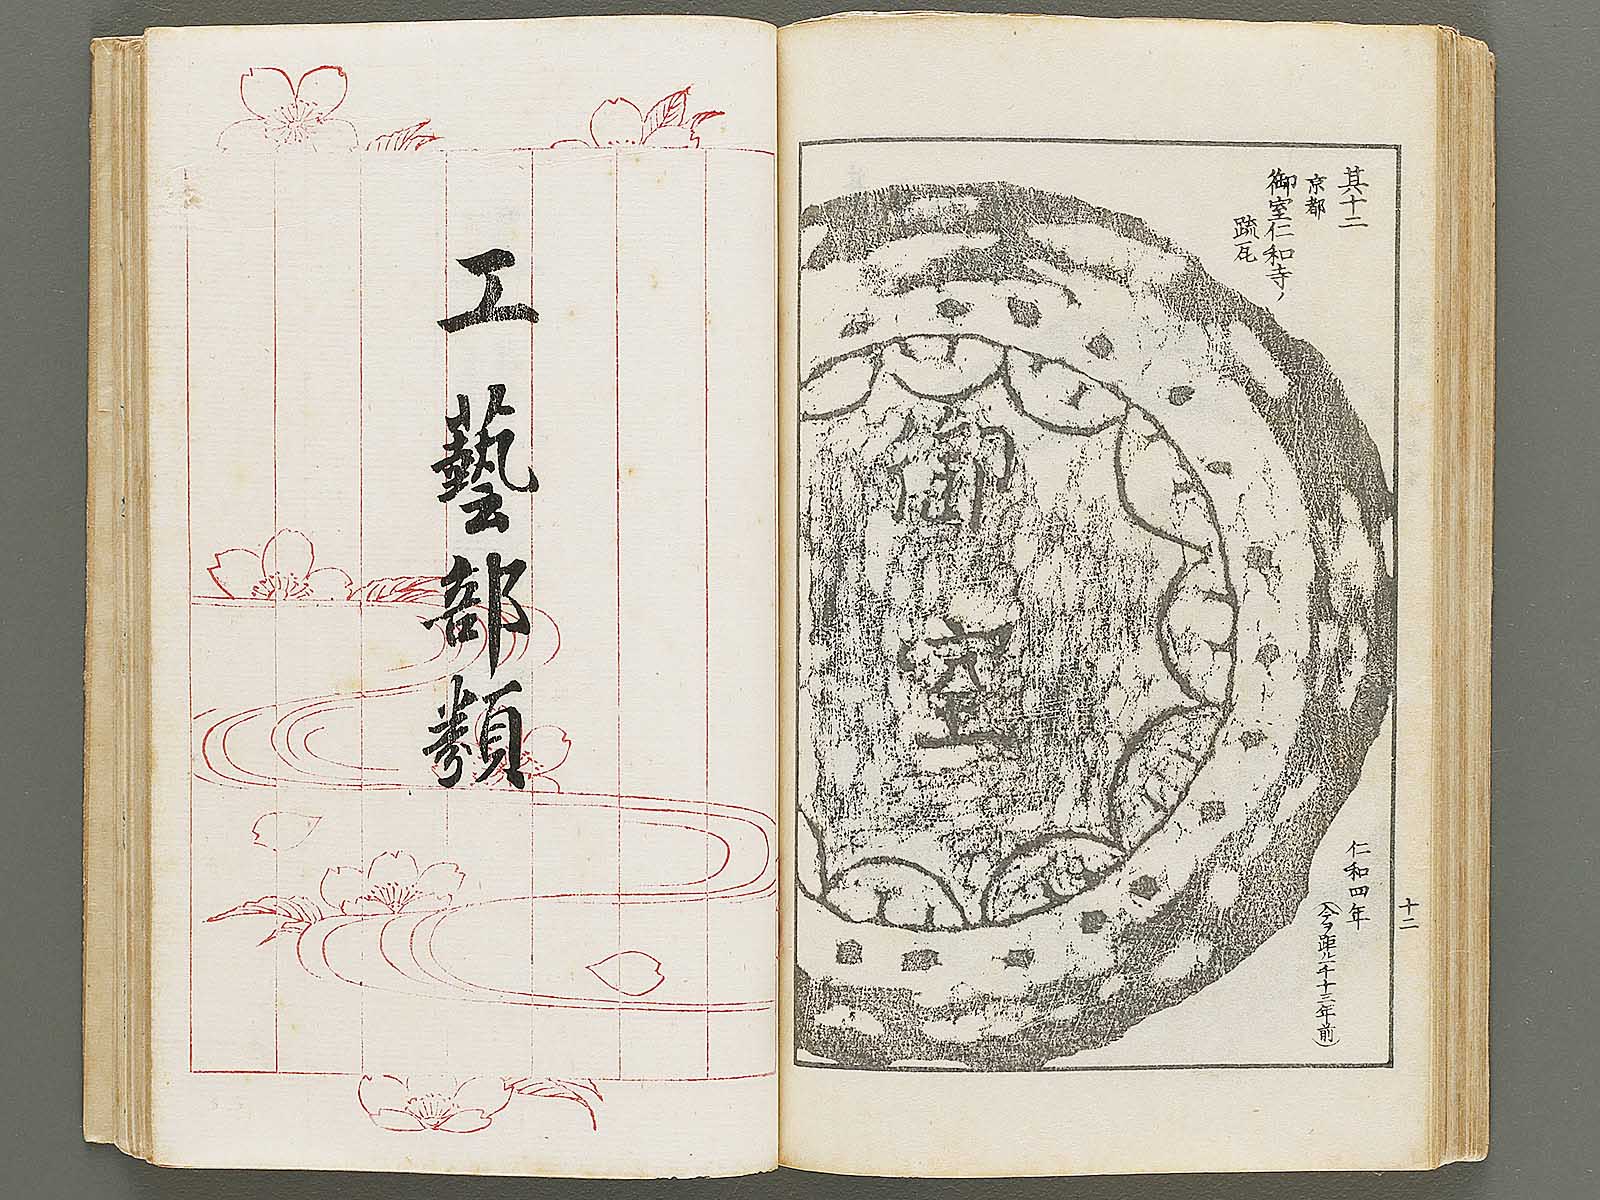 其十二
京都
御室仁和寺ノ
疏瓦
御室
仁和四年
(今ヲ距ル一千十三年前)
十二
工藝部類